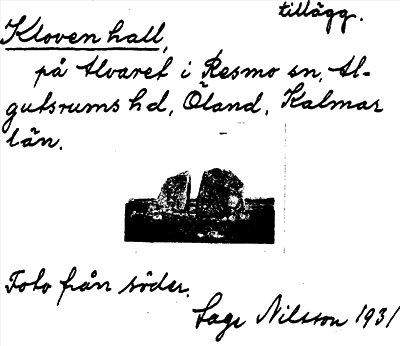 tillägg.
Kloven hall,
på Alvaret i Resmo sn, Al-
gutsrums hd, Öland, Kalmar
län.
Foto från söder.
Sage Nilsson 1931